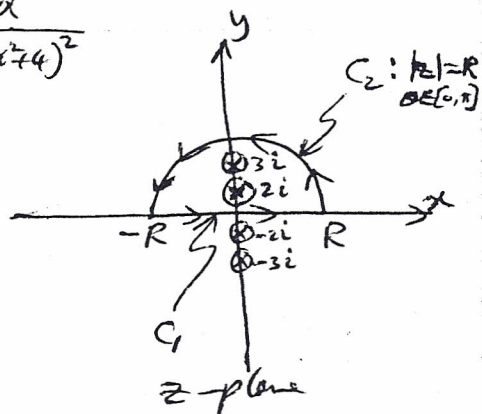 y
(x²+4)²
C₂ : |z|=R
θ∈[0,π]
3i
2i
x
-R
R
-2i
-3i
C₁
z-plane